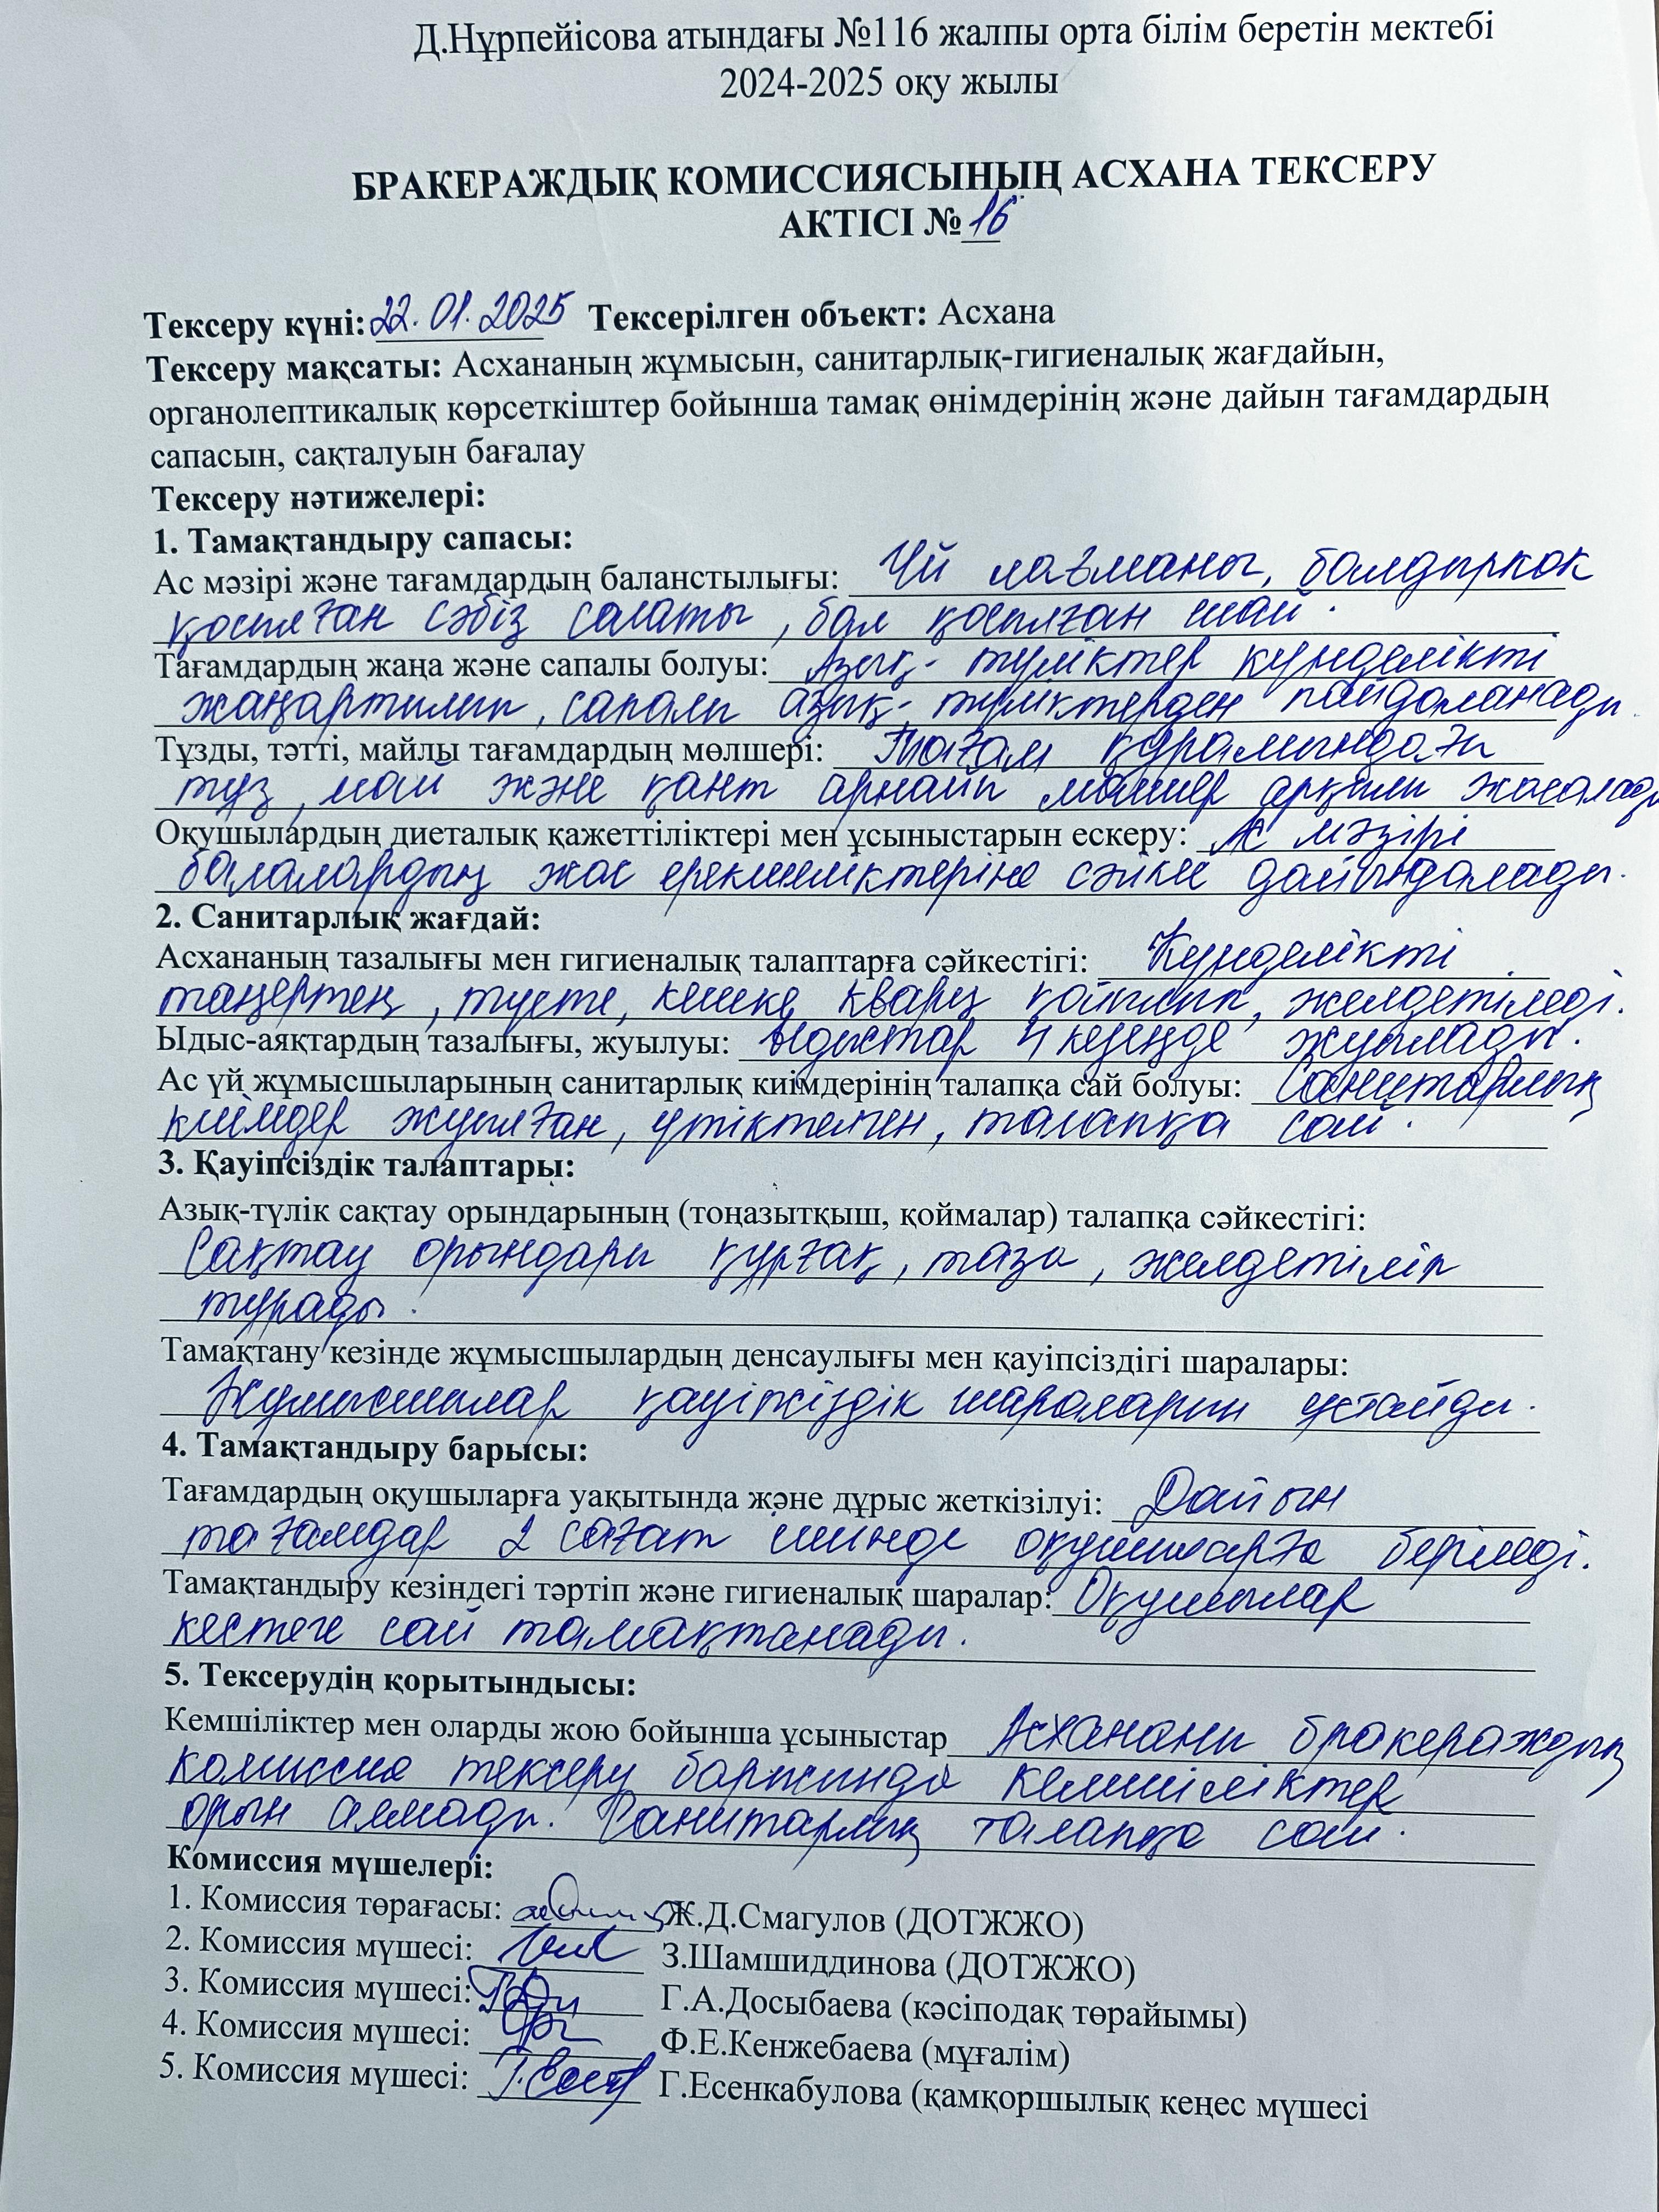 Д.Нұрпейісова атындағы №116 жалпы орта білім беретін мектебі
2024-2025 оқу жылы
БРАКЕРАЖДЫҚ КОМИССИЯСЫНЫҢ АСХАНА ТЕКСЕРУ
АКТІСІ №16
Тексеру күні: 22.01.2025 Тексерілген объект: Асхана
Тексеру мақсаты: Асхананың жұмысын, санитарлық-гигиеналық жағдайын,
органолептикалық көрсеткіштер бойынша тамақ өнімдерінің және дайын тағамдардың
сапасын, сақталуын бағалау
Тексеру нәтижелері:
1. Тамақтандыру сапасы:
Ас мәзірі және тағамдардың баланстылығы: Үй лағманы, балдыркөк
қосылған сәбіз салаты, бал қосылған шай.
Тағамдардың жаңа және сапалы болуы: Азық-түліктер күнделікті
жаңартылып, сапалы азық-түліктерден пайдаланады.
Тұзды, тәтті, майлы тағамдардың мөлшері: Тағам құрамындағы
тұз, май және қант арнайы мөлшер арқылы жасалады
Оқушылардың диеталық қажеттіліктері мен ұсыныстарын ескеру: Ас мәзірі
балалардың жас ерекшеліктеріне сәйкес дайындалады.
2. Санитарлық жағдай:
Асхананың тазалығы мен гигиеналық талаптарға сәйкестігі: Күнделікті
таңертең, түсте, кешке кварц қойылып, желдетіледі.
Ыдыс-аяқтардың тазалығы, жуылуы: Ыдыстар 4 кезеңде жуылады.
Ас үй жұмысшыларының санитарлық киімдерінің талапқа сай болуы: Санитарлық
киімдер жуылған, үтіктелген, талапқа сай.
3. Қауіпсіздік талаптары:
Азық-түлік сақтау орындарының (тоңазытқыш, қоймалар) талапқа сәйкестігі:
Сақтау орындары құрғақ, таза, желдетіліп
тұрады.
Тамақтану кезінде жұмысшылардың денсаулығы мен қауіпсіздігі шаралары:
Жұмысшылар қауіпсіздік шараларын ұстайды.
4. Тамақтандыру барысы:
Тағамдардың оқушыларға уақытында және дұрыс жеткізілуі: Дайын
тағамдар 2 сағат ішінде оқушыларға беріледі.
Тамақтандыру кезіндегі тәртіп және гигиеналық шаралар: Оқушылар
кестеге сай тамақтанады.
5. Тексерудің қорытындысы:
Кемшіліктер мен оларды жою бойынша ұсыныстар Асхананы бракераждық
комиссия тексеру барысында кемшіліктер
орын алмады. Санитарлық талапқа сай.
Комиссия мүшелері:
1. Комиссия төрағасы: Ж.Д.Смагулов (ДОТЖЖО)
2. Комиссия мүшесі: З.Шамшиддинова (ДОТЖЖО)
3. Комиссия мүшесі: Г.А.Досыбаева (кәсіподақ төрайымы)
4. Комиссия мүшесі: Ф.Е.Кенжебаева (мұғалім)
5. Комиссия мүшесі: Г.Есенкабулова (қамқоршылық кеңес мүшесі